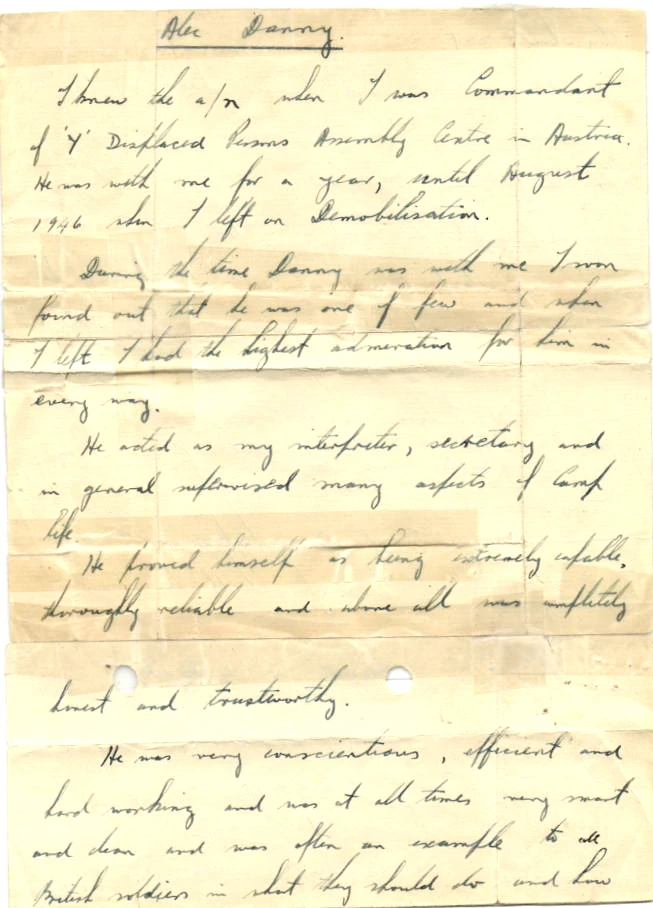 Alec Danny.
I knew the a/n when I was Commandant
of 'Y' Displaced Persons Assembly Centre in Austria.
He was with me for a year, until August
1946 when I left on Demobilisation.
During the time Danny was with me I soon
found out that he was one of few and when
I left I had the highest admiration for him in
every way.
He acted as my interpreter, secretary and
in general supervised many aspects of Camp
life.
He proved himself as being extremely capable,
thoroughly reliable and above all was completely
honest and trustworthy.
He was very conscientious, efficient and
hard working and was at all times very smart
and clean and was often an example to all
British soldiers in what they should do and how